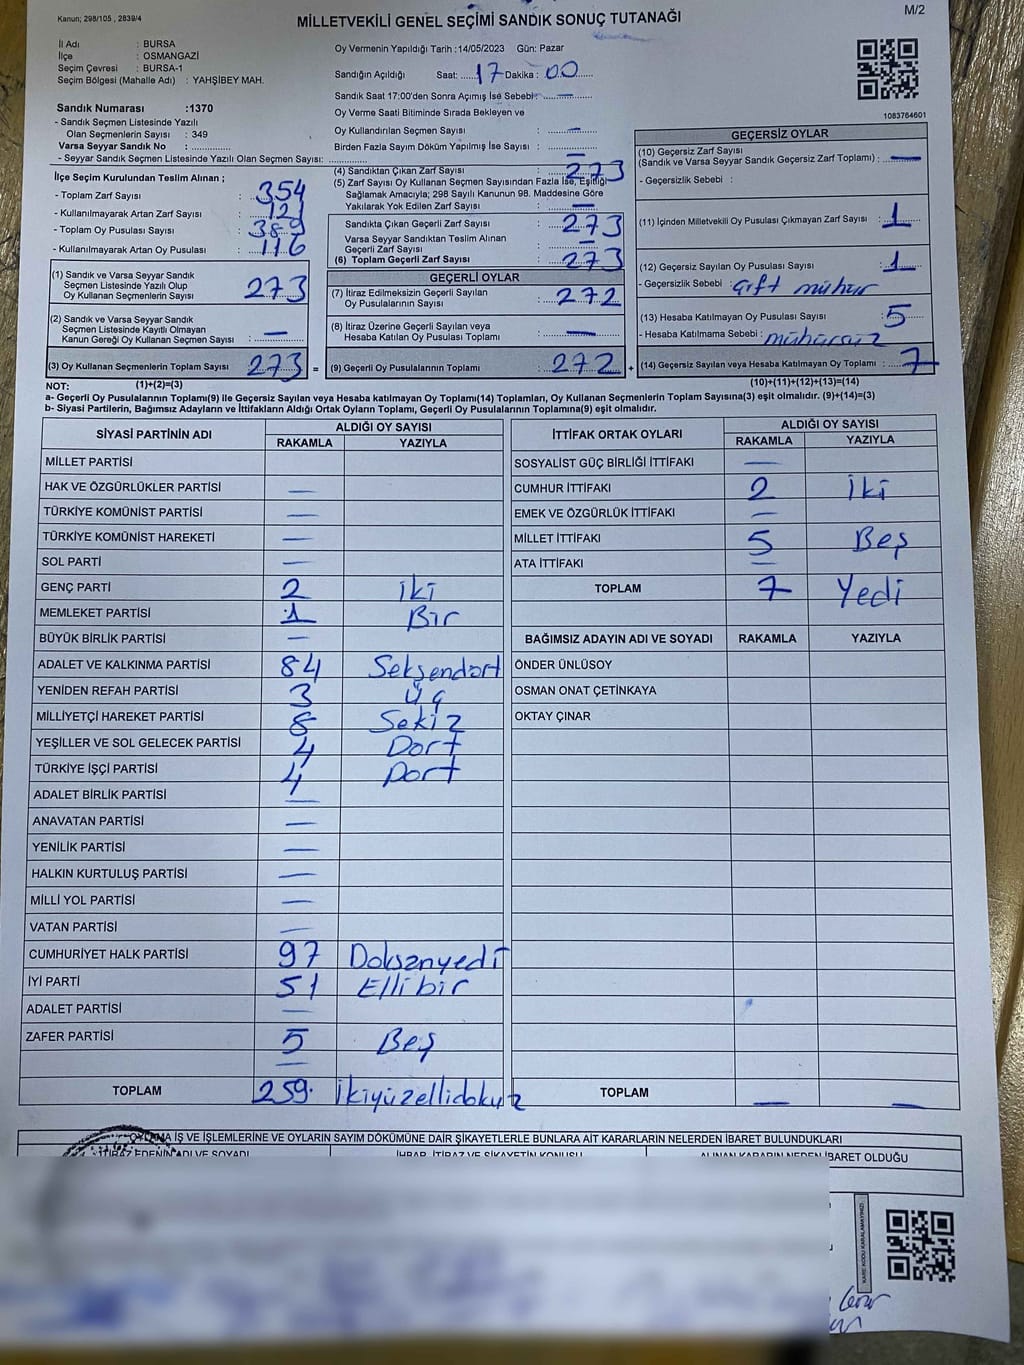 Kanun; 298/105 , 2839/4
MİLLETVEKİLİ GENEL SEÇİMİ SANDIK SONUÇ TUTANAĞI
M/2
İl Adı : BURSA
İlçe : OSMANGAZİ
Seçim Çevresi : BURSA-1
Seçim Bölgesi (Mahalle Adı) : YAHŞİBEY MAH.
Sandık Numarası :1370
- Sandık Seçmen Listesinde Yazılı
Olan Seçmenlerin Sayısı : 349
Varsa Seyyar Sandık No :
- Seyyar Sandık Seçmen Listesinde Yazılı Olan Seçmenlerin Sayısı:
Oy Vermenin Yapıldığı Tarih :14/05/2023 Gün: Pazar
Sandığın Açıldığı Saat: 17 Dakika : 00
Sandık Saat 17:00'den Sonra Açımış İse Sebebi : —
Oy Verme Saati Bitiminde Sırada Bekleyen ve
Oy Kullandırılan Seçmen Sayısı : —
Birden Fazla Sayım Döküm Yapılmış İse Sayısı : —
1083764601
İlçe Seçim Kurulundan Teslim Alınan ;
- Toplam Zarf Sayısı : 354
- Kullanılmayarak Artan Zarf Sayısı :
- Toplam Oy Pusulası Sayısı : 389
- Kullanılmayarak Artan Oy Pusulası : 116
(1) Sandık ve Varsa Seyyar Sandık
Seçmen Listesinde Yazılı Olup
Oy Kullanan Seçmenlerin Sayısı : 273
(2) Sandık ve Varsa Seyyar Sandık
Seçmen Listesinde Kayıtlı Olmayan
Kanun Gereği Oy Kullanan Seçmen Sayısı : —
(3) Oy Kullanan Seçmenlerin Toplam Sayısı : 273 =
(4) Sandıktan Çıkan Zarf Sayısı : 273
(5) Zarf Sayısı Oy Kullanan Seçmen Sayısından Fazla İse, Eşitliği
Sağlamak Amacıyla; 298 Sayılı Kanunun 98. Maddesine Göre
Yakılarak Yok Edilen Zarf Sayısı : —
Sandıkta Çıkan Geçerli Zarf Sayısı : 273
Varsa Seyyar Sandıktan Teslim Alınan
Geçerli Zarf Sayısı : —
(6) Toplam Geçerli Zarf Sayısı : 273
GEÇERLİ OYLAR
(7) İtiraz Edilmeksizin Geçerli Sayılan
Oy Pusulalarının Sayısı : 272
(8) İtiraz Üzerine Geçerli Sayılan veya
Hesaba Katılan Oy Pusulası Toplamı : —
(9) Geçerli Oy Pusulalarının Toplamı : 272 +
GEÇERSİZ OYLAR
(10) Geçersiz Zarf Sayısı
(Sandık ve Varsa Seyyar Sandık Geçersiz Zarf Toplamı) : —
- Geçersizlik Sebebi :
(11) İçinden Milletvekili Oy Pusulası Çıkmayan Zarf Sayısı : 1
(12) Geçersiz Sayılan Oy Pusulası Sayısı : 1
- Geçersizlik Sebebi : çift mühür
(13) Hesaba Katılmayan Oy Pusulası Sayısı : 5
- Hesaba Katılmama Sebebi : mühürsüz
(14) Geçersiz Sayılan veya Hesaba Katılmayan Oy Toplamı : 7
NOT: (1)+(2)=(3)
(10)+(11)+(12)+(13)=(14)
a- Geçerli Oy Pusulalarının Toplamı(9) ile Geçersiz Sayılan veya Hesaba katılmayan Oy Toplamı(14) Toplamları, Oy Kullanan Seçmenlerin Toplam Sayısına(3) eşit olmalıdır. (9)+(14)=(3)
b- Siyasi Partilerin, Bağımsız Adayların ve İttifakların Aldığı Ortak Oyların Toplamı, Geçerli Oy Pusulalarının Toplamına(9) eşit olmalıdır.
SİYASİ PARTİNİN ADI ALDIĞI OY SAYISI
RAKAMLA YAZIYLA
MİLLET PARTİSİ
HAK VE ÖZGÜRLÜKLER PARTİSİ —
TÜRKİYE KOMÜNİST PARTİSİ —
TÜRKİYE KOMÜNİST HAREKETİ —
SOL PARTİ —
GENÇ PARTİ 2 iki
MEMLEKET PARTİSİ 1 Bir
BÜYÜK BİRLİK PARTİSİ —
ADALET VE KALKINMA PARTİSİ 84 Seksendört
YENİDEN REFAH PARTİSİ 3 Üç
MİLLİYETÇİ HAREKET PARTİSİ 8 Sekiz
YEŞİLLER VE SOL GELECEK PARTİSİ 4 Dört
TÜRKİYE İŞÇİ PARTİSİ 4 Dört
ADALET BİRLİK PARTİSİ —
ANAVATAN PARTİSİ —
YENİLİK PARTİSİ —
HALKIN KURTULUŞ PARTİSİ —
MİLLİ YOL PARTİSİ —
VATAN PARTİSİ —
CUMHURİYET HALK PARTİSİ 97 Doksanyedi
İYİ PARTİ 51 Ellibir
ADALET PARTİSİ —
ZAFER PARTİSİ 5 Beş
—
TOPLAM 259 İkiyüzellidokuz
İTTİFAK ORTAK OYLARI ALDIĞI OY SAYISI
RAKAMLA YAZIYLA
SOSYALİST GÜÇ BİRLİĞİ İTTİFAKI —
CUMHUR İTTİFAKI 2 İki
EMEK VE ÖZGÜRLÜK İTTİFAKI —
MİLLET İTTİFAKI 5 Beş
ATA İTTİFAKI —
TOPLAM 7 Yedi
BAĞIMSIZ ADAYIN ADI VE SOYADI RAKAMLA YAZIYLA
ÖNDER ÜNLÜSOY
OSMAN ONAT ÇETİNKAYA
OKTAY ÇINAR
TOPLAM — —
OYLAMA İŞ VE İŞLEMLERİNE VE OYLARIN SAYIM DÖKÜMÜNE DAİR ŞİKAYETLERLE BUNLARA AİT KARARLARIN NELERDEN İBARET BULUNDUKLARI
İTİRAZ EDENİN ADI VE SOYADI İHBAR, İTİRAZ VE ŞİKAYETİN KONUSU ALINAN KARARIN NEDEN İBARET OLDUĞU
KARE KODU KARALAMAYINIZ!